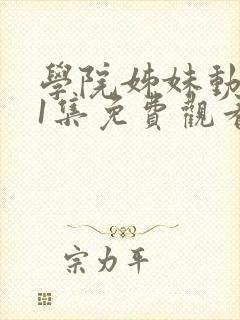 學院姊妹動
1集免費觀看
宗力平